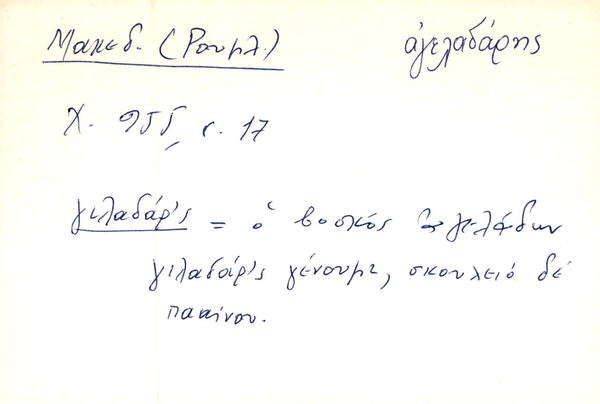 Μακεδ. (Ρουμλ.) ἀγελαδάρης
Χ. 955, σ. 17
γιλαδάρ'ς = ὁ βοσκός ἀγελάδων
γιλαδάρ'ς γένουμι, σκουλειό δέ
πααίνου.